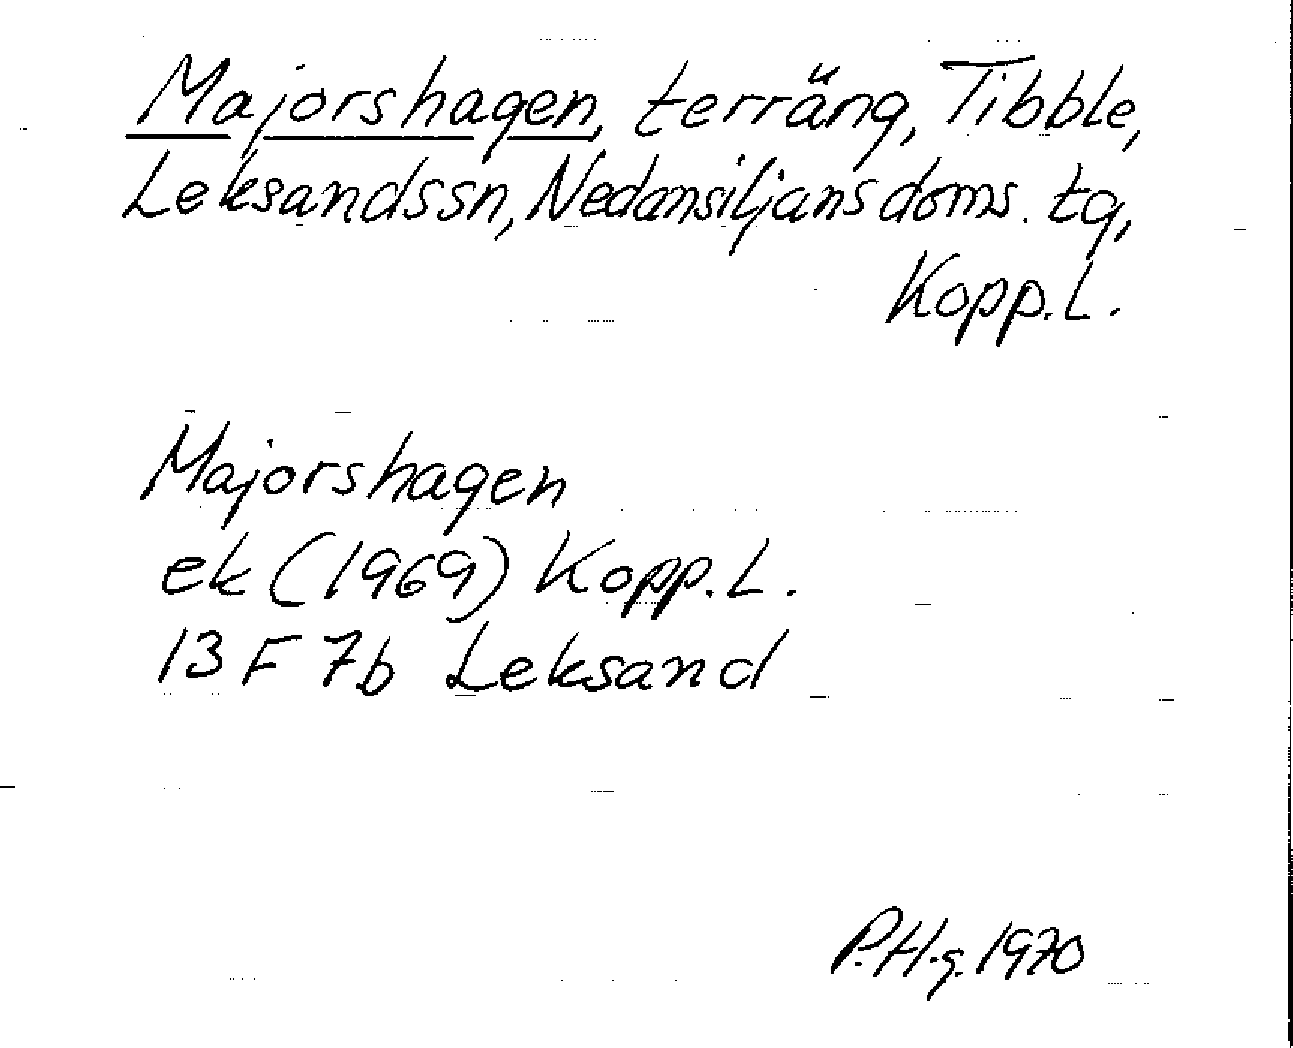 Majorshagen, terräng, Tibble,
Leksandssn, Nedansiljans doms. tg,
Kopp. L.
Majorshagen
ek (1969) Kopp. L.
13 F 7b Leksand
P.H-g. 1970